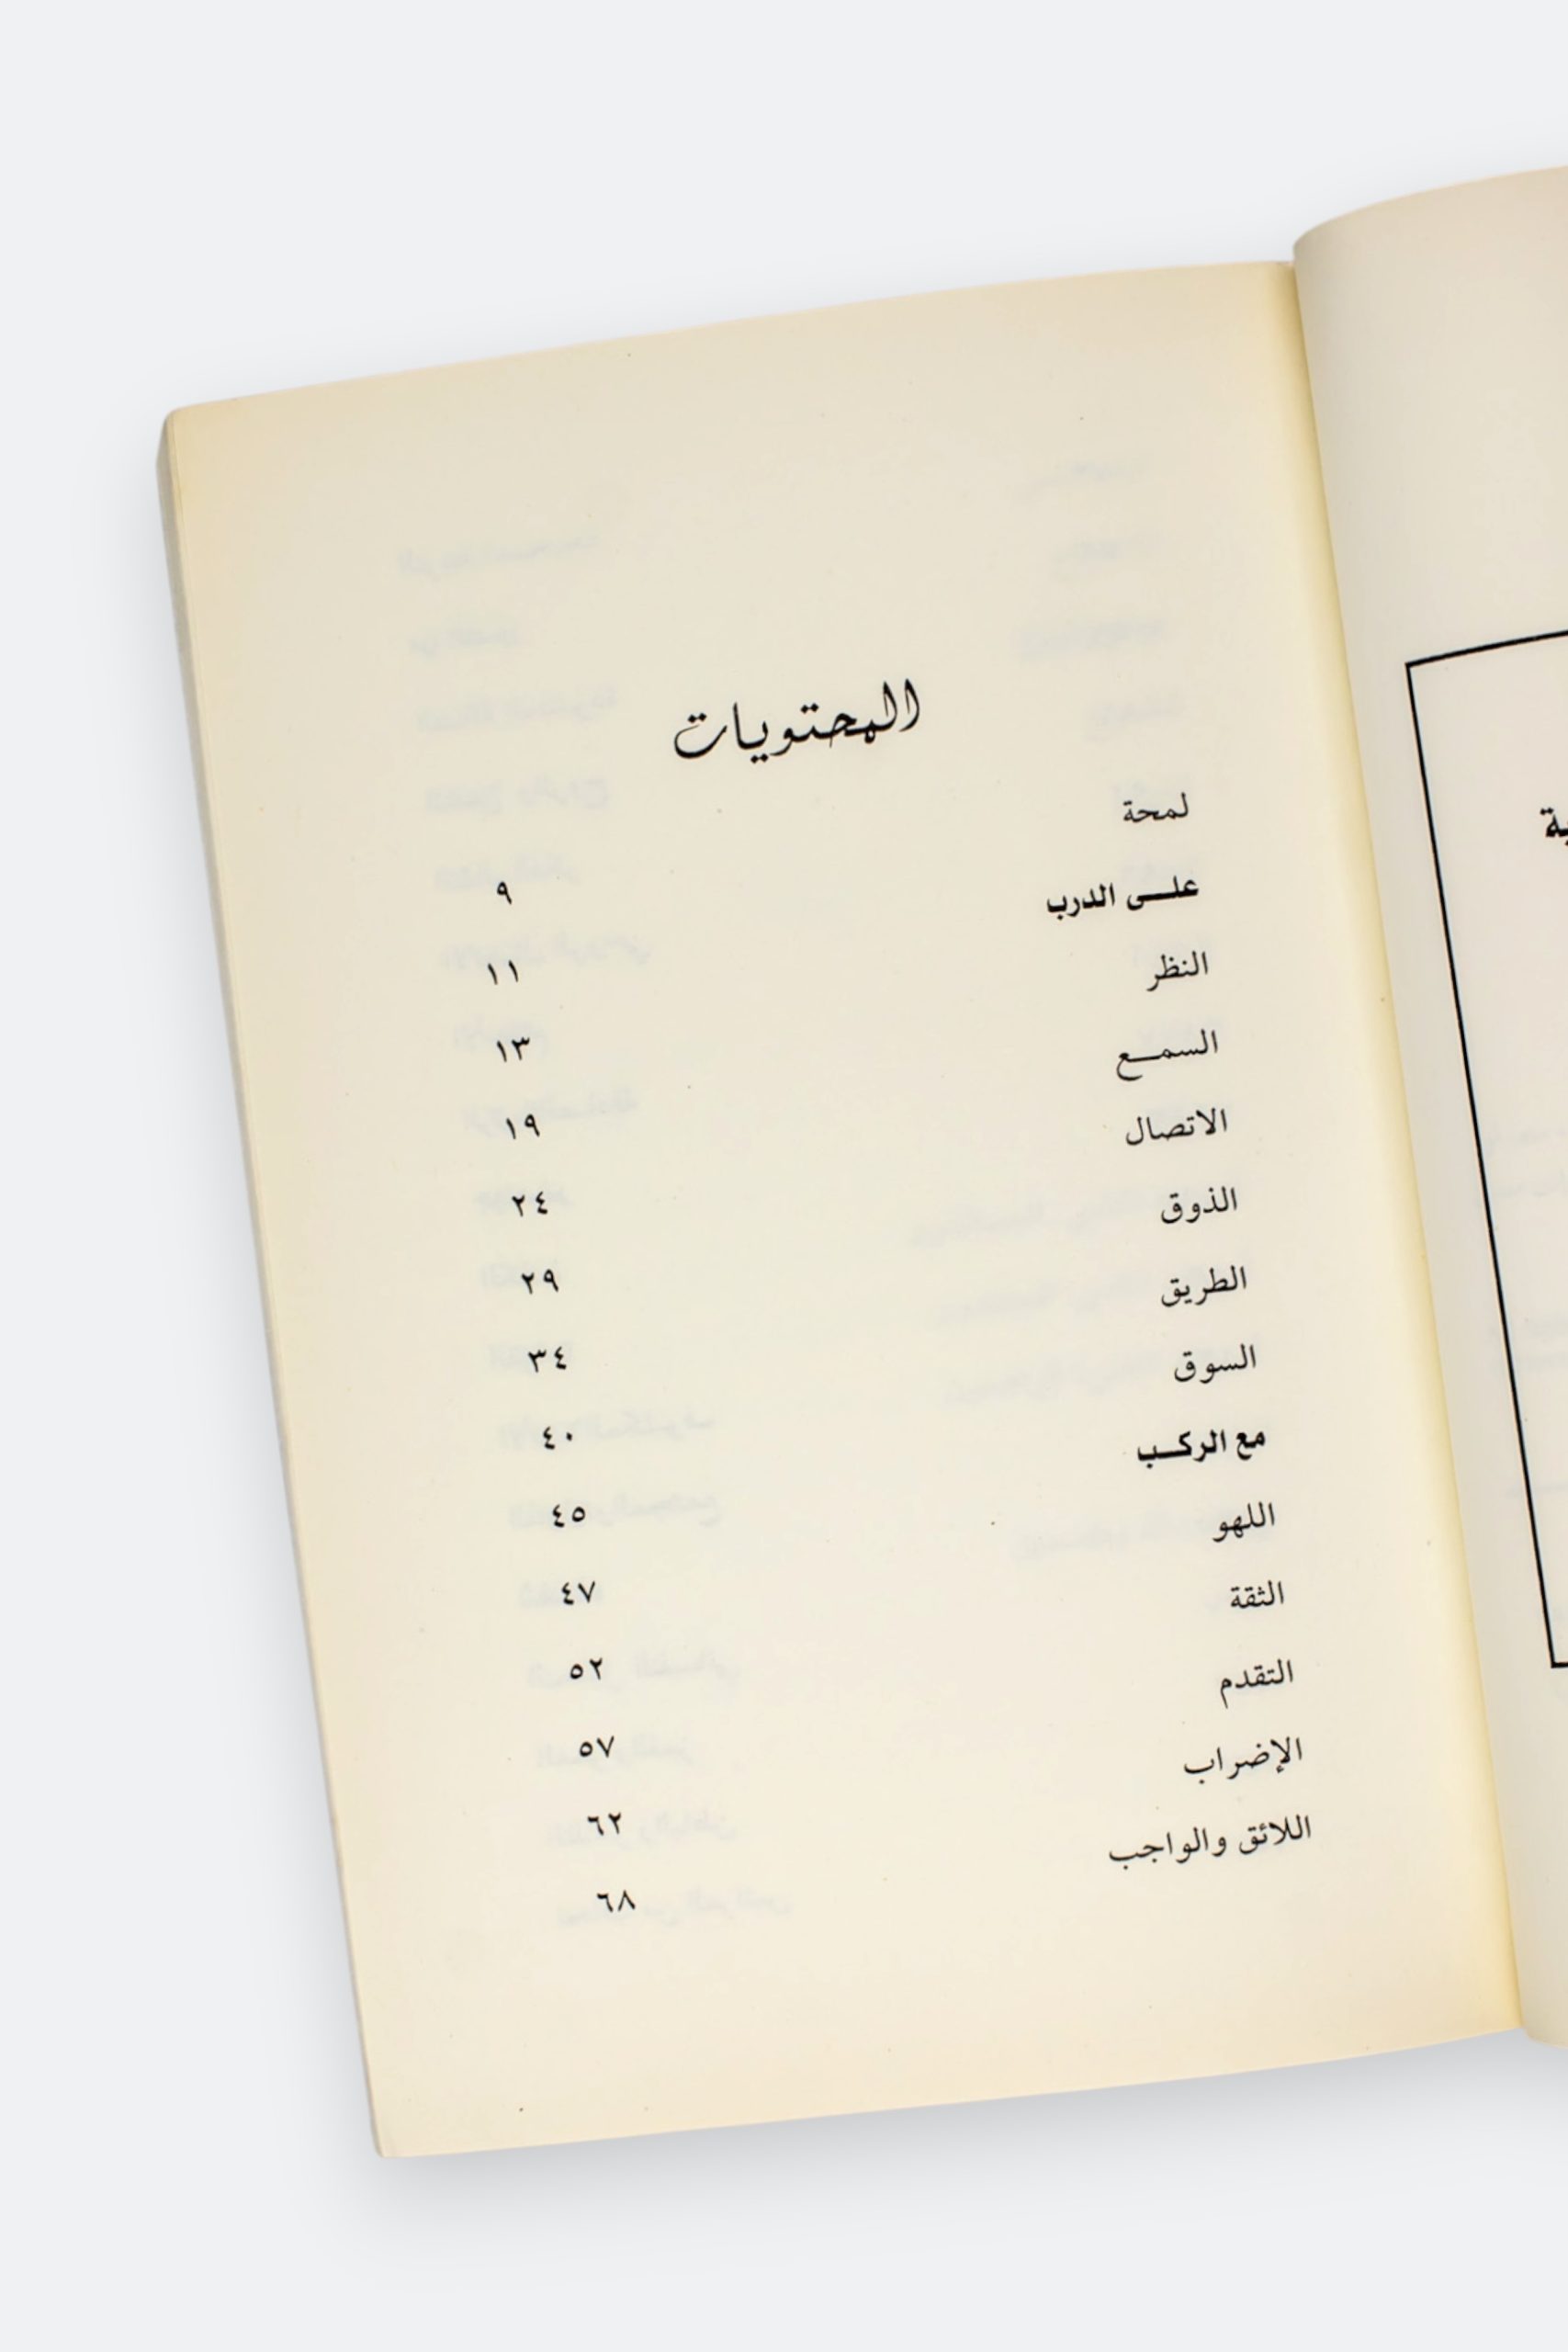 المحتويات
لمحة ٩
علـــى الدرب ١١
النظر ١٣
السمـــع ١٩
الاتصال ٢٤
الذوق ٢٩
الطريق ٣٤
السوق ٤٠
مع الركـــب ٤٥
اللهو ٤٧
الثقة ٥٢
التقدم ٥٧
الإضراب ٦٢
اللائق والواجب ٦٨